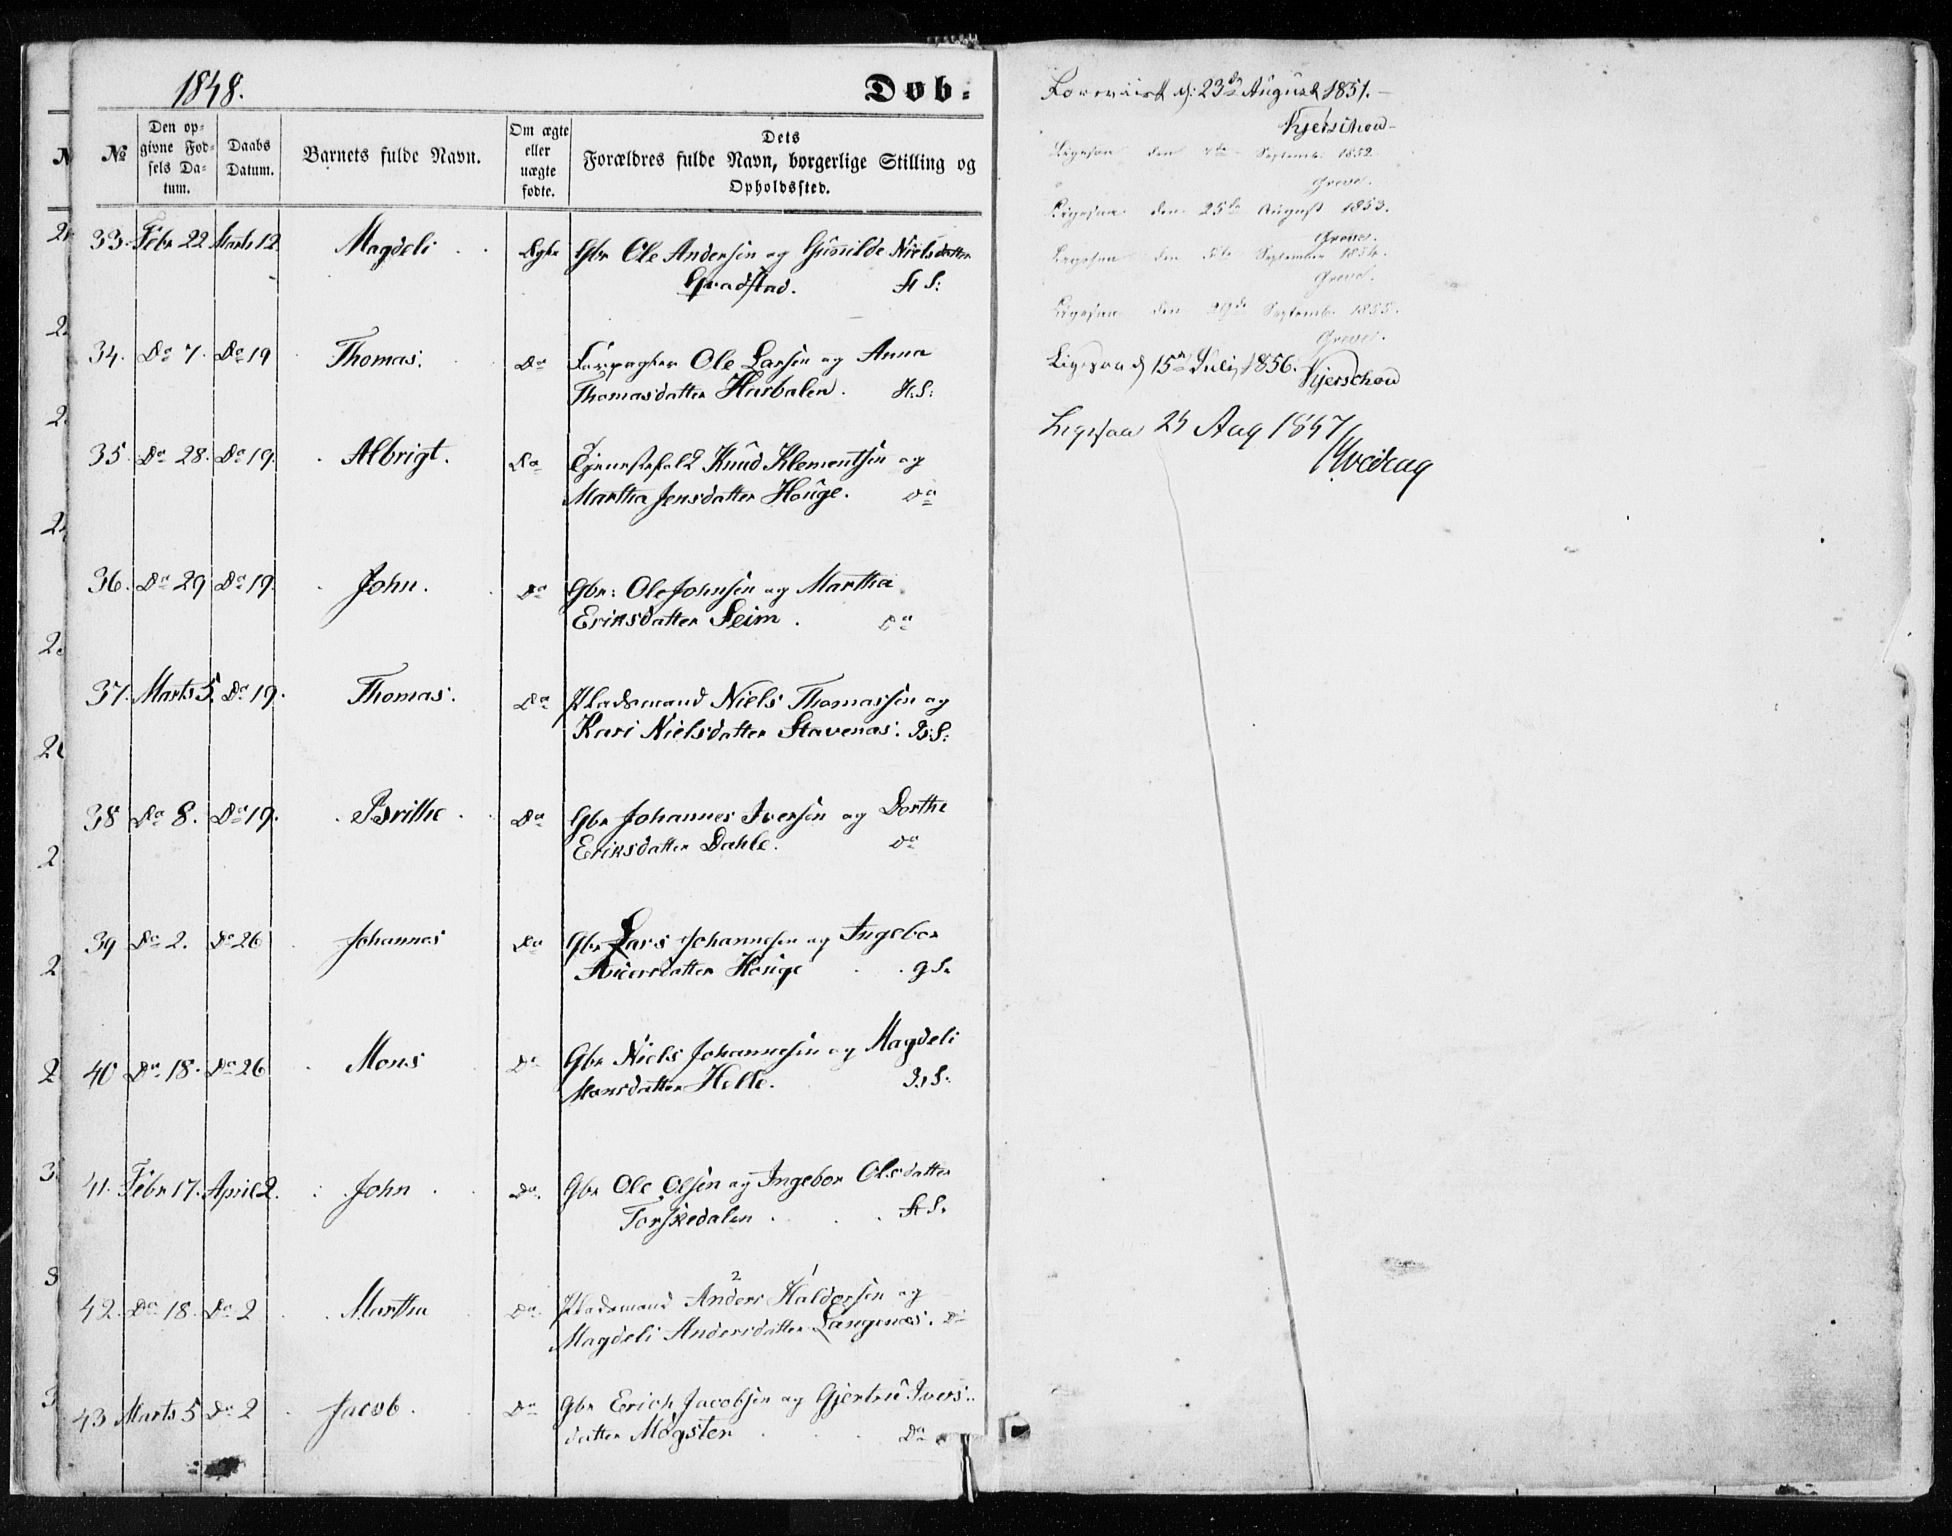 1848.
Døb:
№
Den opgivne Fødsels Datum.
Daabs Datum.
Barnets fulde Navn.
Om ægte eller uægte fødte.
Dets Forældres fulde Navn, borgerlige Stilling og Opholdssted.
33. Febr 22 Marts 12 Magdeli Ægte Gbr Ole Andersen og Gunilde Nielsdatter
34. Do 7. Do 19 Thomas. Do Forpagter Ole Larsen og Anna
Thomasdatter Harbalen. H.S:
35. Do 28. Do 19. Albrigt. Do Tjenestefolk Knud Klementsen og
Martha Jensdatter Houge. Do
36. Do 29 Do 19. John. Do Gbr: Ole Johnsen og Martha
Eriksdatter Seim. Do
37. Marts 5. Do 19. Thomas. Do Pladsmand Niels Thomassen og
Kari Nielsdatter Stavenæs.
38 Do 8. Do 19. Brithe Do Gbr Johannes Iversen og Dorthe
Eriksdatter Dahle. Do
39 Do 2. Do 26 Johannes Do Gbr Lars Johannesen og Ingebor
Houge
40 Do 18. Do 26 Mons Do Gbr Niels Johannesen og Magdeli
Monsdatter Helle.
41. Febr 17. April 2. John Do. Gbr Ole Olsen og Ingebor Olsdatter
Torskedalen
42. Do 18. Do 2 Martha Do. Pladsmand Anders Haldorsen og
2 1
Magdeli Andersdatter Langenæs. Do
43 Marts 5 Do 2 Jacob. Do Gbr Erich Jacobsen og Gjertru Ivers-
datter Møgster Do
Foreviist d: 23de August 1851.
Kjerschow
Ligesaa den Septemb. 1852.
Greve.
Ligesaa den 25de August 1853.
Greve.
Ligesaa den September 1854.
Greve.
Ligesaa den 29de Septemb. 1855.
Greve.
Ligesaa d 15de Juli 1856. Kjerschow
Ligesaa 25 Aug 1857